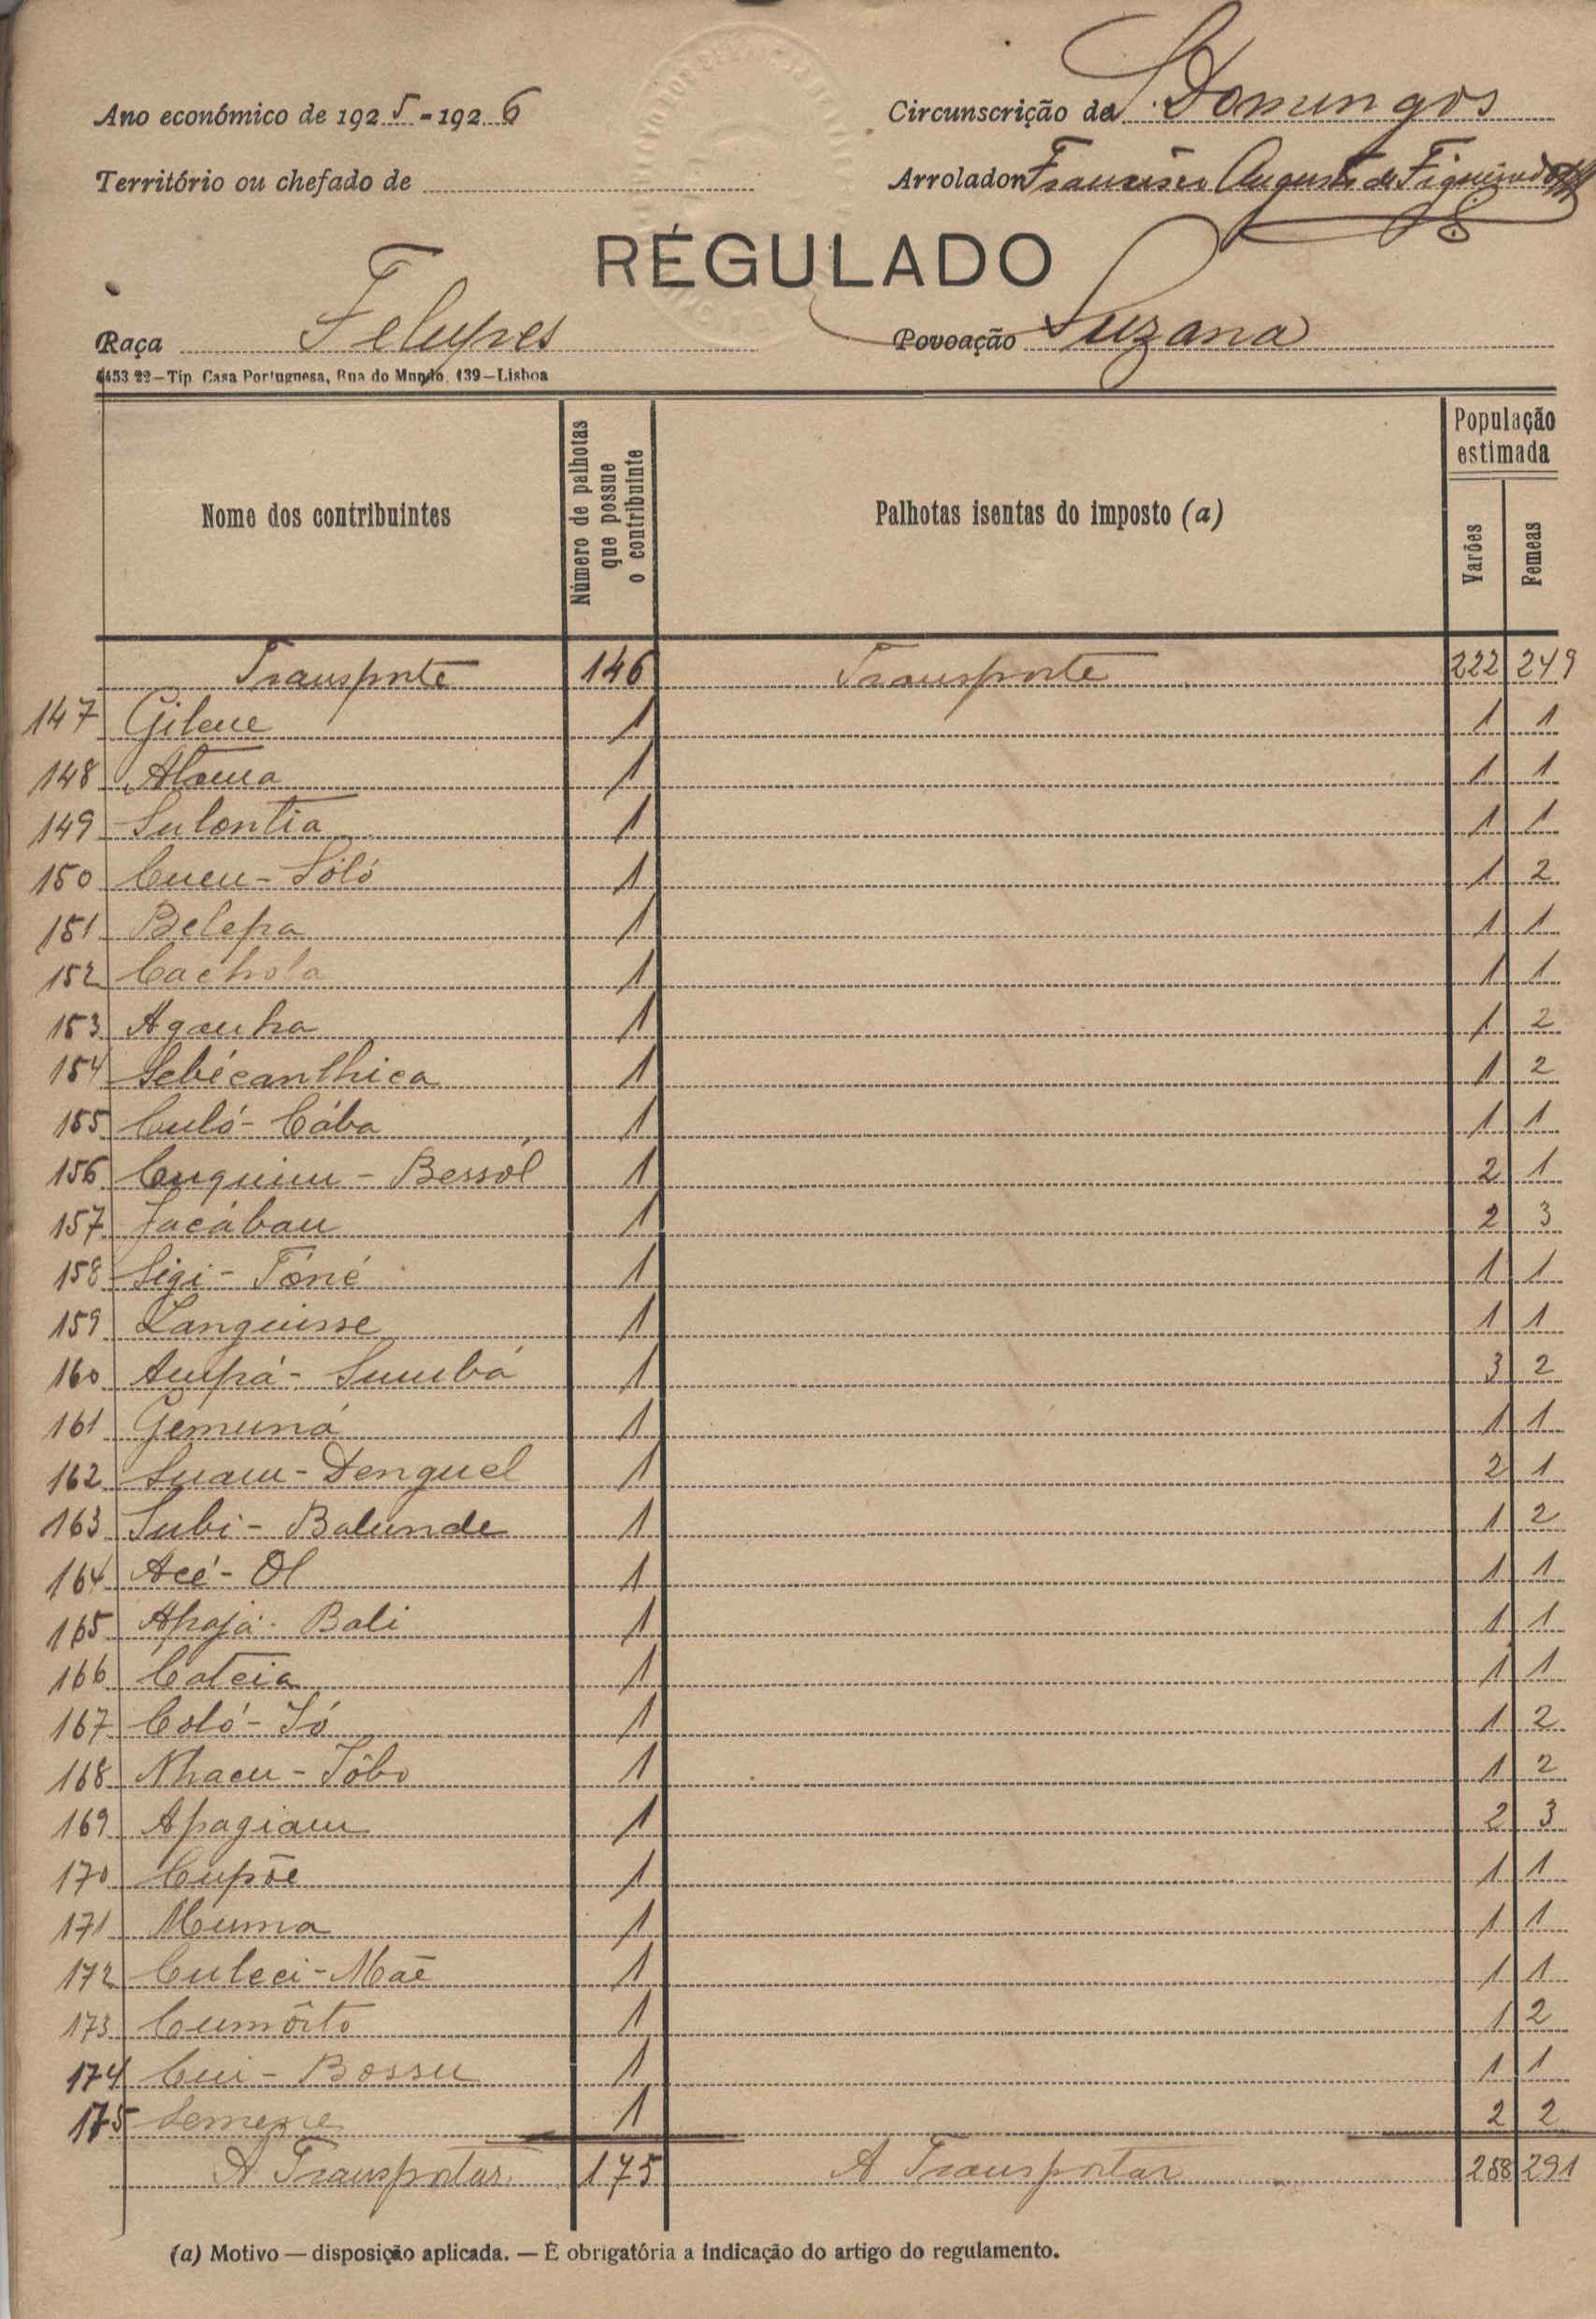 Ano económico de 1925-1926
Circunscrição de S. Domingos
Território ou chefado de
Arrolador Francisco Augusto de Figueiredo
RÉGULADO
Raça Felupes
Povoação Suzana
4453 22—Tip. Casa Portuguesa, Rua do Mundo, 139—Lisboa
Nome dos contribuintes
Número de palhotas que possue o contribuinte
Palhotas isentas do imposto (a)
População estimada
Varões
Femeas
Transporte 146 Transporte 222 249
147 Gilene 1 1 1
148 1 1 1
149 Sulontia 1 1 1
150 Cucu-Sóló 1 1 2
151 Belepa 1 1 1
152 Cachola 1 1 1
153 Aganha 1 1 2
154 Sebécanthica 1 1 2
155 Culó-Cába 1 1 1
156 Cuquinu-Bessól 1 2 1
157 Jacábau 1 2 3
158 Sigi-Tóné 1 1 1
159 Languisse 1 1 1
160 Ampá-Sumbá 1 3 2
161 Gemuná 1 1 1
162 Suam-Denguel 1 2 1
163 Subi-Balunde 1 1 2
164 Acé-Ol 1 1 1
165 Apajá-Bali 1 1 1
166 Cateia 1 1 1
167 Coló-Só 1 1 2
168 Nhacu-Tôbo 1 1 2
169 Apagiam 1 2 3
170 Cupõe 1 1 1
171 Muma 1 1 1
172 Culeci-Mãe 1 1 1
173 Cumôito 1 1 2
174 Cui-Bossu 1 1 1
175 1 2 2
A Transportar 175 A Transportar 258 291
(a) Motivo — disposição aplicada. — É obrigatória a indicação do artigo do regulamento.